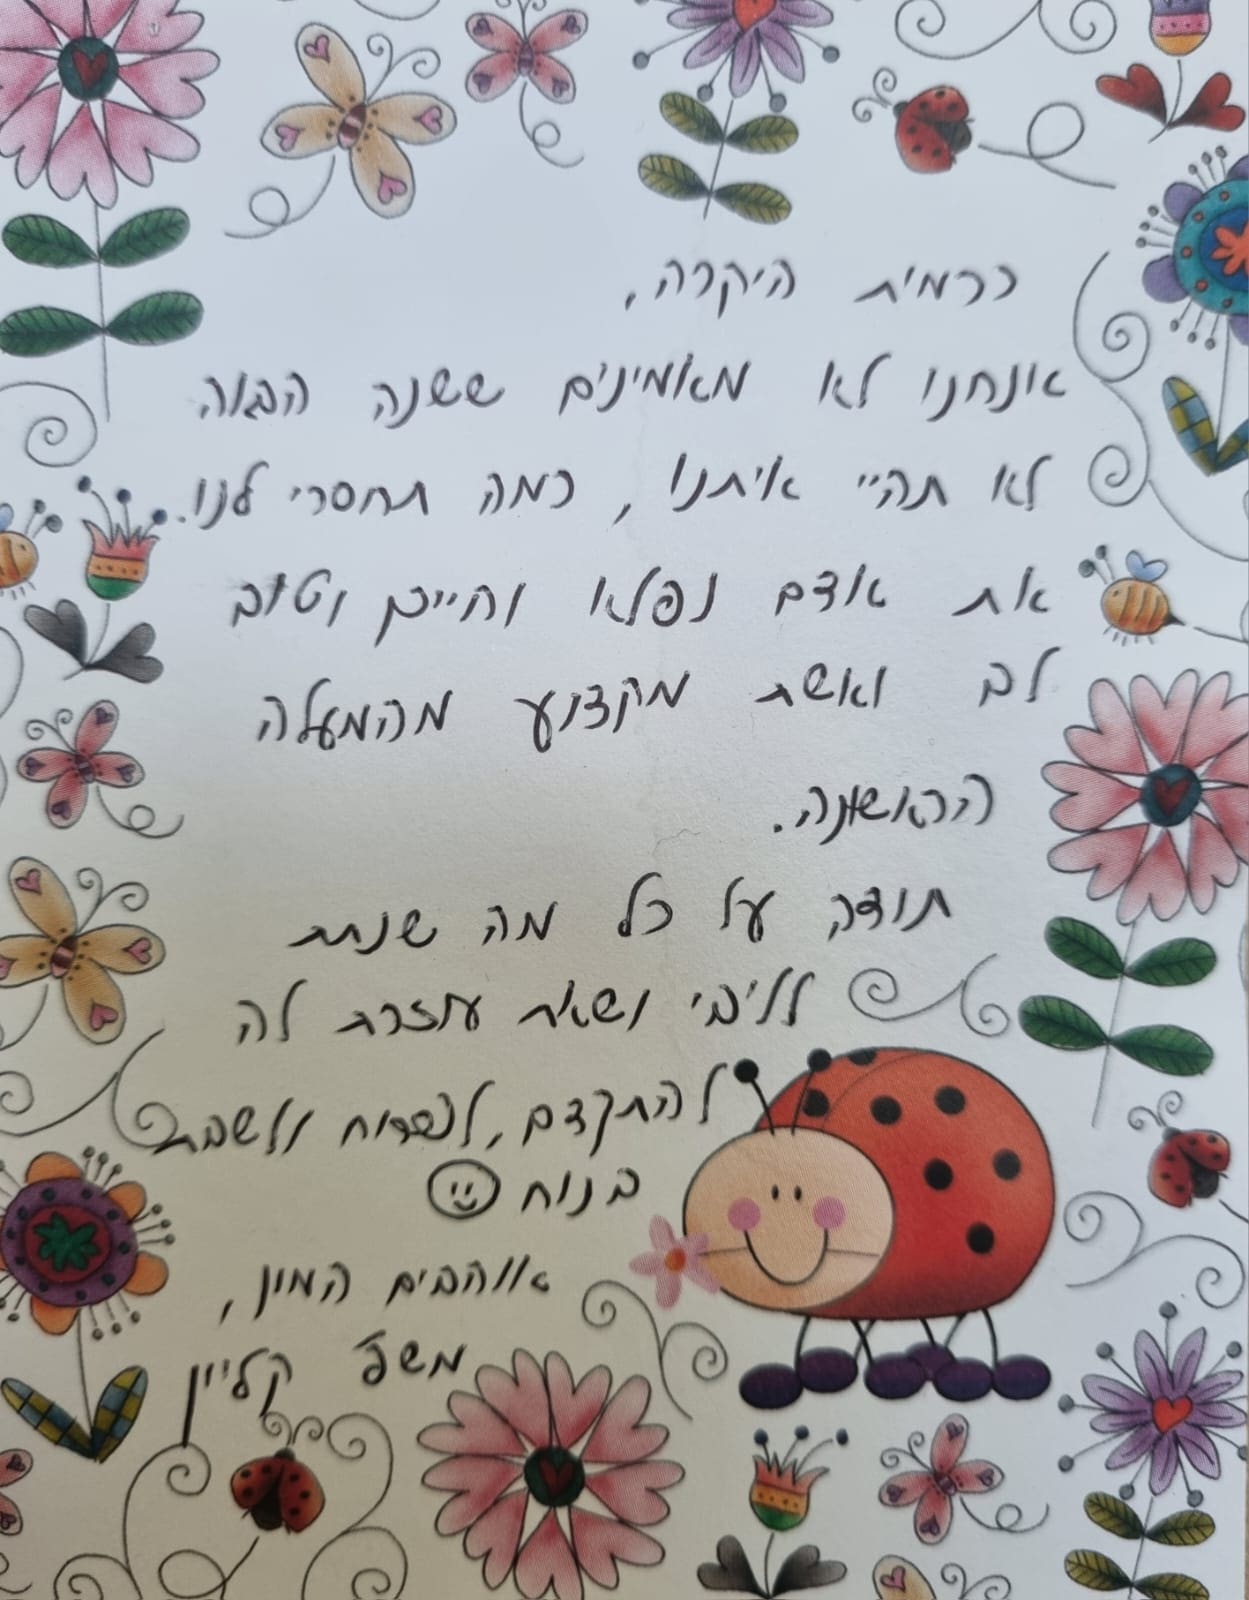 כרמית היקרה,
אנחנו לא מאמינים ששנה הבאה
לא תהיי איתנו, כמה תחסרי לנו.
את אדם נפלא וחייכן וטוב
לב ואשת מקצוע מהמעלה
הראשונה.
תודה על כל מה שנתת
לליבי ושאת עוזרת לה
להתקדם, לפרוח ולשבת
בנוח
אוהבים המון,
משפ' קליין